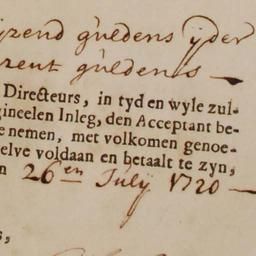 yzend guldens yder
zent guldens —
Directeurs, in tyd en wyle zul-
gincelen Inleg, den Acceptant be-
e nemen, met volkomen genoe-
elve voldaan en betaalt te zyn,
n 26en July 1720 —
s,